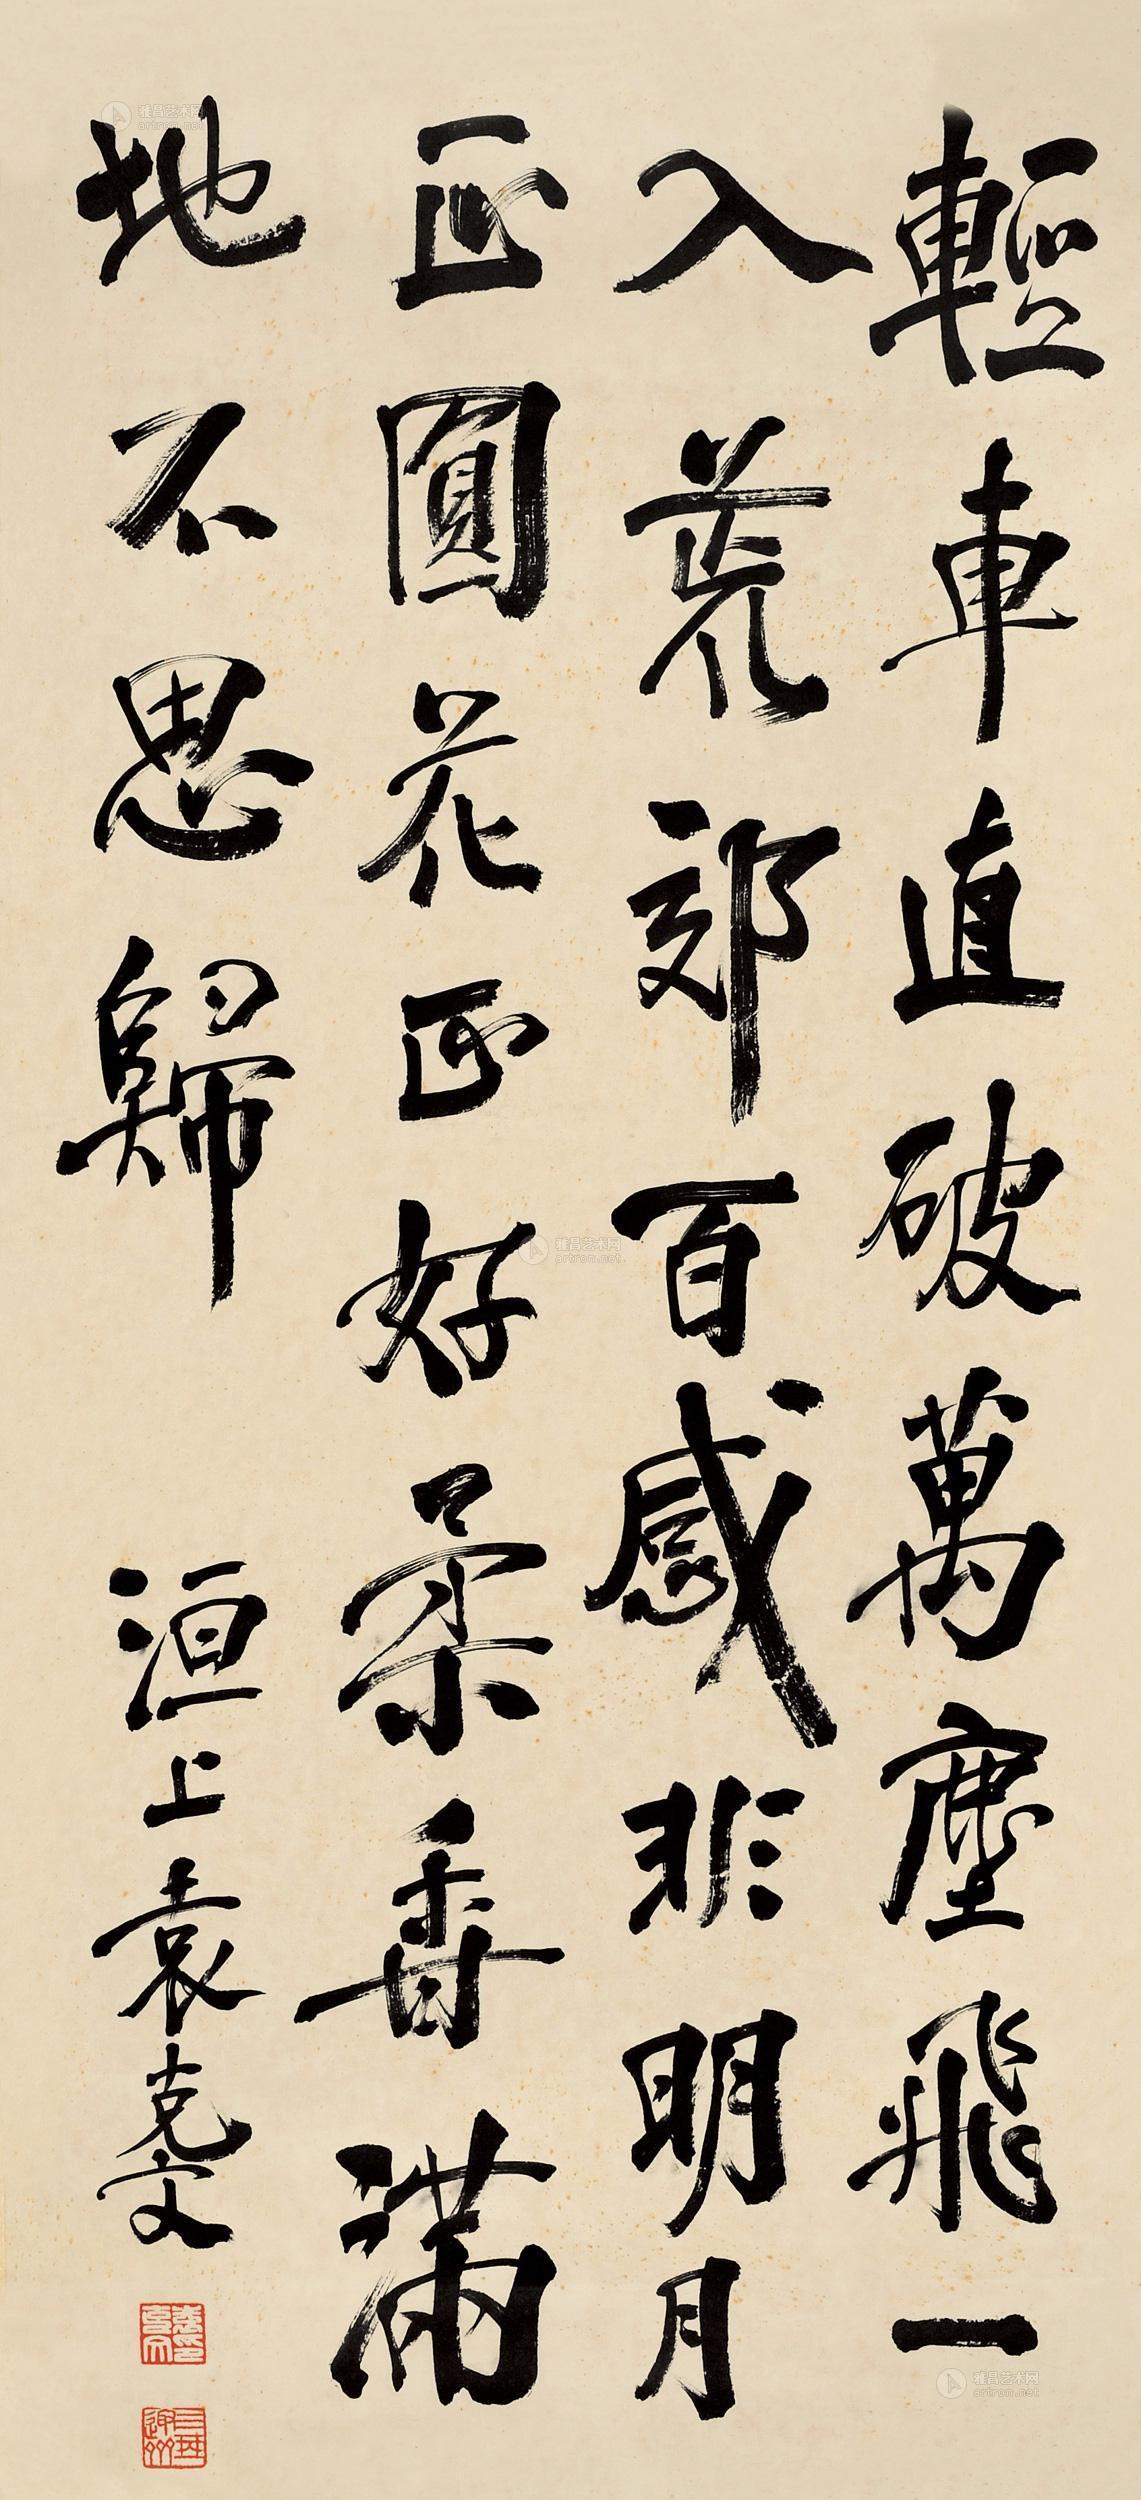 輕車直破萬塵飛一
入荒郊百感非明月
正圓花正好柔香滿
地不思歸
洹上袁克文
雅昌艺术网
artron.net
雅昌艺术网
artron.net
雅昌艺术网
artron.net